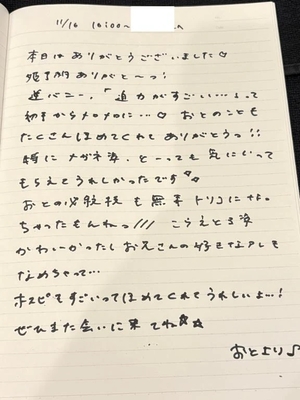 11/16 16:00〜
本日はありがとうございました♡
指名ありがと〜っ!
逆バニー、「迫力がすごい…」って
初手からメロメロに…♡ おとのことも
たくさんほめてくれてありがとうっ!!
特にメガネ姿、とーっても気にいって
もらえてうれしかったです♡
おとの必殺技も無事トリコになっ
ちゃったもんねっ/// こうえとる姿
かわいかったしお兄さんの好きなアレも
なめちゃって…
ホスピもすごいってほめてくれてうれしいよ…!
ぜひまた会いに来てね☆☆
おとより♪